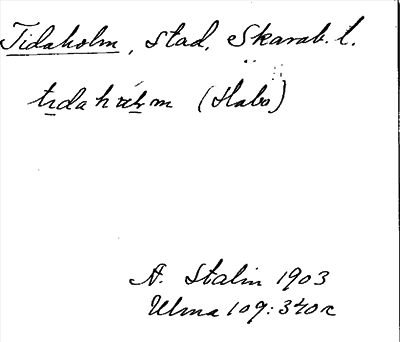 Tidaholm, stad, Skarab. l.
(Habo)
A. Stalin 1903
Ulma 109: 340 c